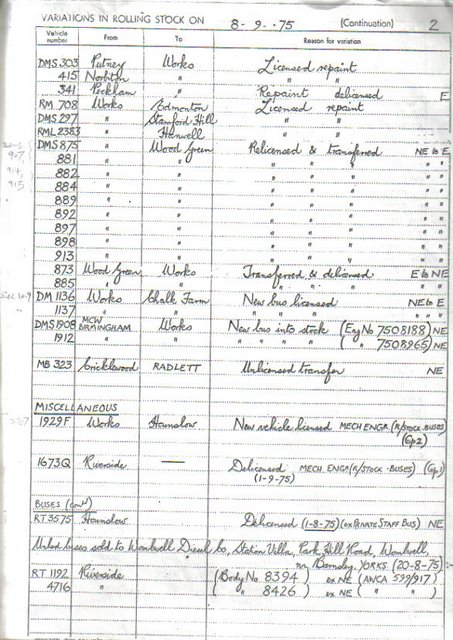 VARIATIONS IN ROLLING STOCK ON 8-9-75 (Continuation) 2
Vehicle number From To Reason for variation
DMS 303 Putney Works Licensed repaint
415 Norbiton " " "
341 Peckham " Repaint delicensed E
RM 708 Works Edmonton Licensed repaint
DMS 297 " Stamford Hill " "
RML 2383 " Hanwell " "
DMS 875 " Wood Green Relicensed & transferred NE to E
907, 881 " " " " " " "
914, 882 " " " " " " "
915 884 " " " " " " "
889 " " " " " " "
892 " " " " " " "
897 " " " " " " "
898 " " " " " " "
913 " " " " " " "
873 Wood Green Works Transferred & delicensed E to NE
885 " " " " " " "
DM 1136 Works Chalk Farm New bus licensed NE to E
1137 " " " " " " "
DMS 1908 MCW BIRMINGHAM Works New bus into stock (Eng No 7508188) NE
1912 " " " " " " ( " " 7508965) NE
MB 323 Cricklewood RADLETT Unlicensed transfer NE
MISCELLANEOUS
1929F Works Hounslow New vehicle licensed MECH ENGR (R/STOCK-BUSES)
(Gp2)
1673Q Riverside — Delicensed MECH ENGR (R/STOCK-BUSES) (Gp1)
(1-9-75)
BUSES (contd)
RT 3575 Hounslow Delicensed (1-8-75) (ex PRIVATE STAFF BUS) NE
Unlicd buses sold to Wombwell Diesel Co, Station Villa, Park Hill Road, Wombwell,
nr Barnsley, YORKS. (20-8-75) :-
RT 1192 Riverside (Body No. 8394) ex NE (ANCA 599/917)
4716 " ( " 8426) ex NE ( " " )